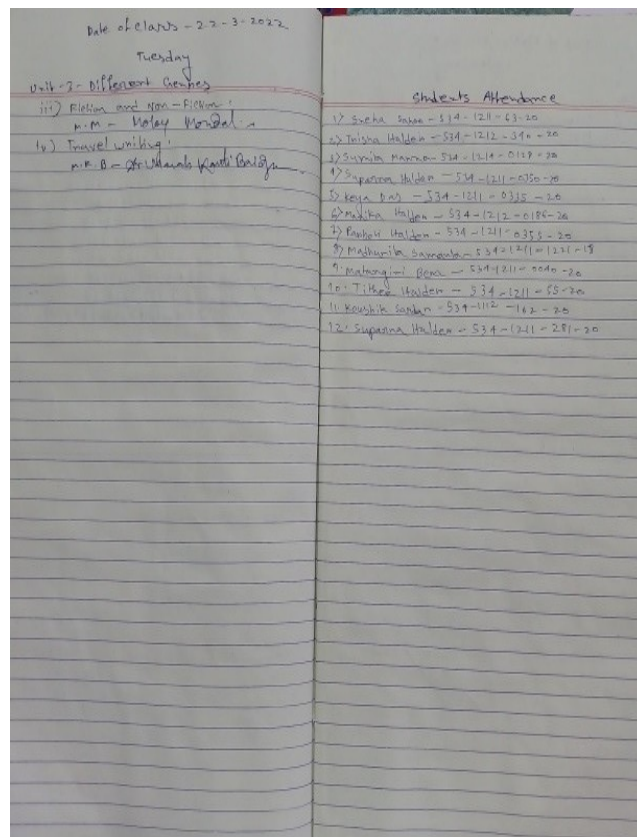 Date of Class - 22-3-2022
Tuesday
Unit-3- Different Genres
iii) Fiction and Non-Fiction:
M.M - Moloy Mondal
iv) Travel writing:
M.K.B - Kanti
Students Attendance
1) Sneha - 534-1211-63-20
2) Trisha Halder - 534-1212-340-20
3) - 534-1214-0128-20
4) Suparna Halder - 534-1211-0350-20
5) Keya Das - 534-1211-0335-20
6) Halder - 534-1212-0186-20
7) Halder - 534-1211-0355-20
8) Madhumita Samanta - 534-1211-1221-18
9. Matangini Bera - 534-1211-0040-20
10. Tithee Halder - 534-1211-55-20
11. Koushik - 534-1112-162-20
12. Suparna Halder - 534-1211-281-20